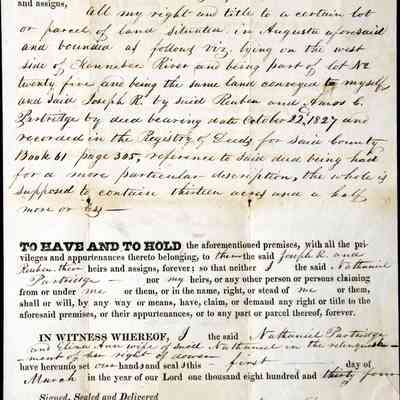 and assigns,
all my right and title to a certain lot
or parcel of land situated in Augusta aforesaid
and bounded as follows viz. lying on the west
side of Kennebec River and being part of lot No
twenty five and being the same land conveyed to myself
and said Joseph R. by said Reuben and Amos C.
Partridge by deed bearing date October 22, 1827 and
recorded in the Registry of Deeds for said County
Book 61 page 305, reference to said deed being had
for a more particular description, the whole is
supposed to contain thirteen acres and a half
more or less —
TO HAVE AND TO HOLD the aforementioned premises, with all the pri-
vileges and appurtenances thereto belonging, to them the said Joseph R. and
Reuben, their heirs and assigns, forever; so that neither I the said Nathaniel
Partridge — nor my heirs, or any other person or persons claiming
from or under me or them, or in the name, right, or stead of me or them,
shall or will, by any way or means, have, claim, or demand any right or title to the
aforesaid premises, or their appurtenances, or to any part or parcel thereof, forever.
IN WITNESS WHEREOF, I the said Nathaniel Partridge
and Eliza Ann wife of said Nathaniel in the relinquish-
ment of her right of dower
have hereunto set our hand and seal this first day of
March in the year of our Lord one thousand eight hundred and thirty four
Signed, Sealed and Delivered